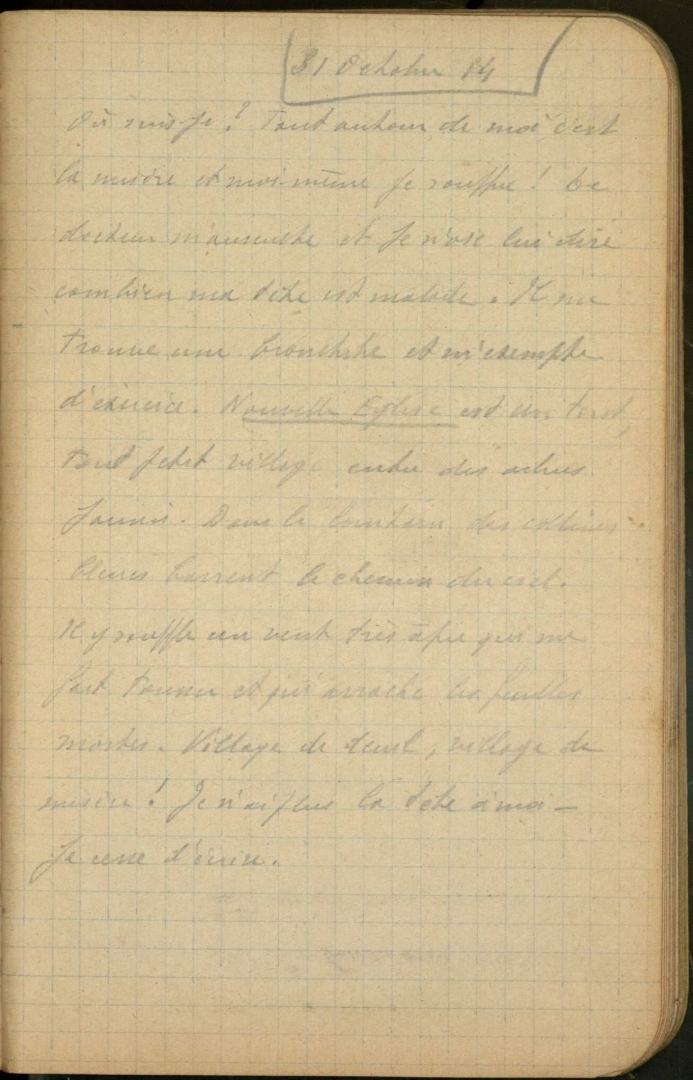 31 October 14
Où suis-je ? Tout autour de moi c'est
la misère et moi-même je souffre ! Le
docteur m'ausculte et je n'ose lui dire
combien ma tête est malade. Il me
trouve une bronchite et m'exempte
d'exercice. Nouvelle Eglise est un tout,
tout petit village entre des arbres
jaunis. Dans le lointain des collines
bleues barrent le chemin du ciel.
Il y souffle un vent très âpre qui me
fait tousser et qui arrache les feuilles
mortes. Village de deuil, village de
misère ! Je n'ai plus la tête à moi –
Je cesse d'écrire.